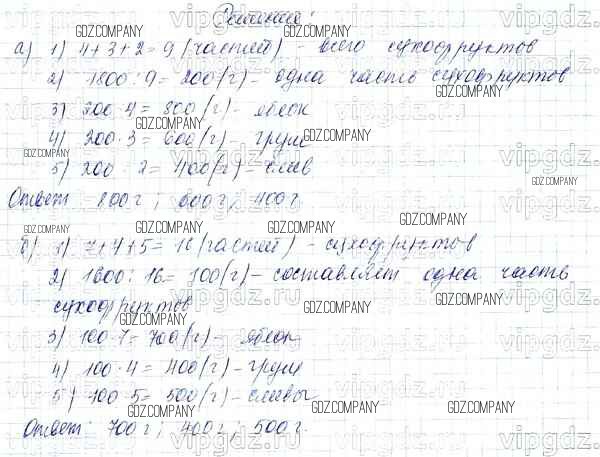 Решение:
а) 1) 4+3+2=9 (частей) - всего сухофруктов
2) 1800:9=200(г) - одна часть сухофруктов
3) 200·4=800(г) - яблок
4) 200·3=600(г) - груш
5) 200·2=400(г) - слив
Ответ: 800г; 600г; 400г.
б) 1) 7+4+5=16 (частей) - сухофруктов
2) 1600:16=100(г) - составляет одна часть
сухофруктов
3) 100·7=700(г) - яблок
4) 100·4=400(г) - груш
5) 100·5=500(г) - сливы
Ответ: 700г; 400г; 500г.